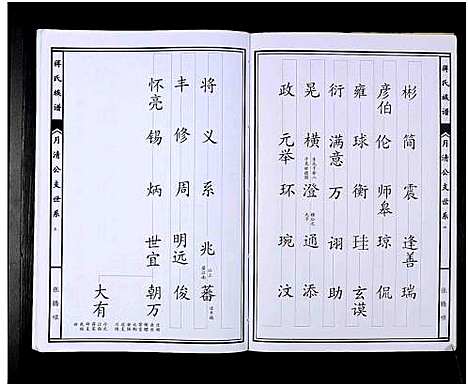 蒋氏族谱
月清公支世系
彬 简 震 逢善 瑞
彦伯 伦 师皋 琼 侃
雍 球 衡 珪 玄谟
衍 满意 万 诩 助
晃 横 澄 通 添
政 元举 环 琬 汶
将 义 系 兆 蕃
丰 修 周 明远 俊
怀亮 锡 炳 世宜 朝万
大有
蒋氏族谱
月清公支世系